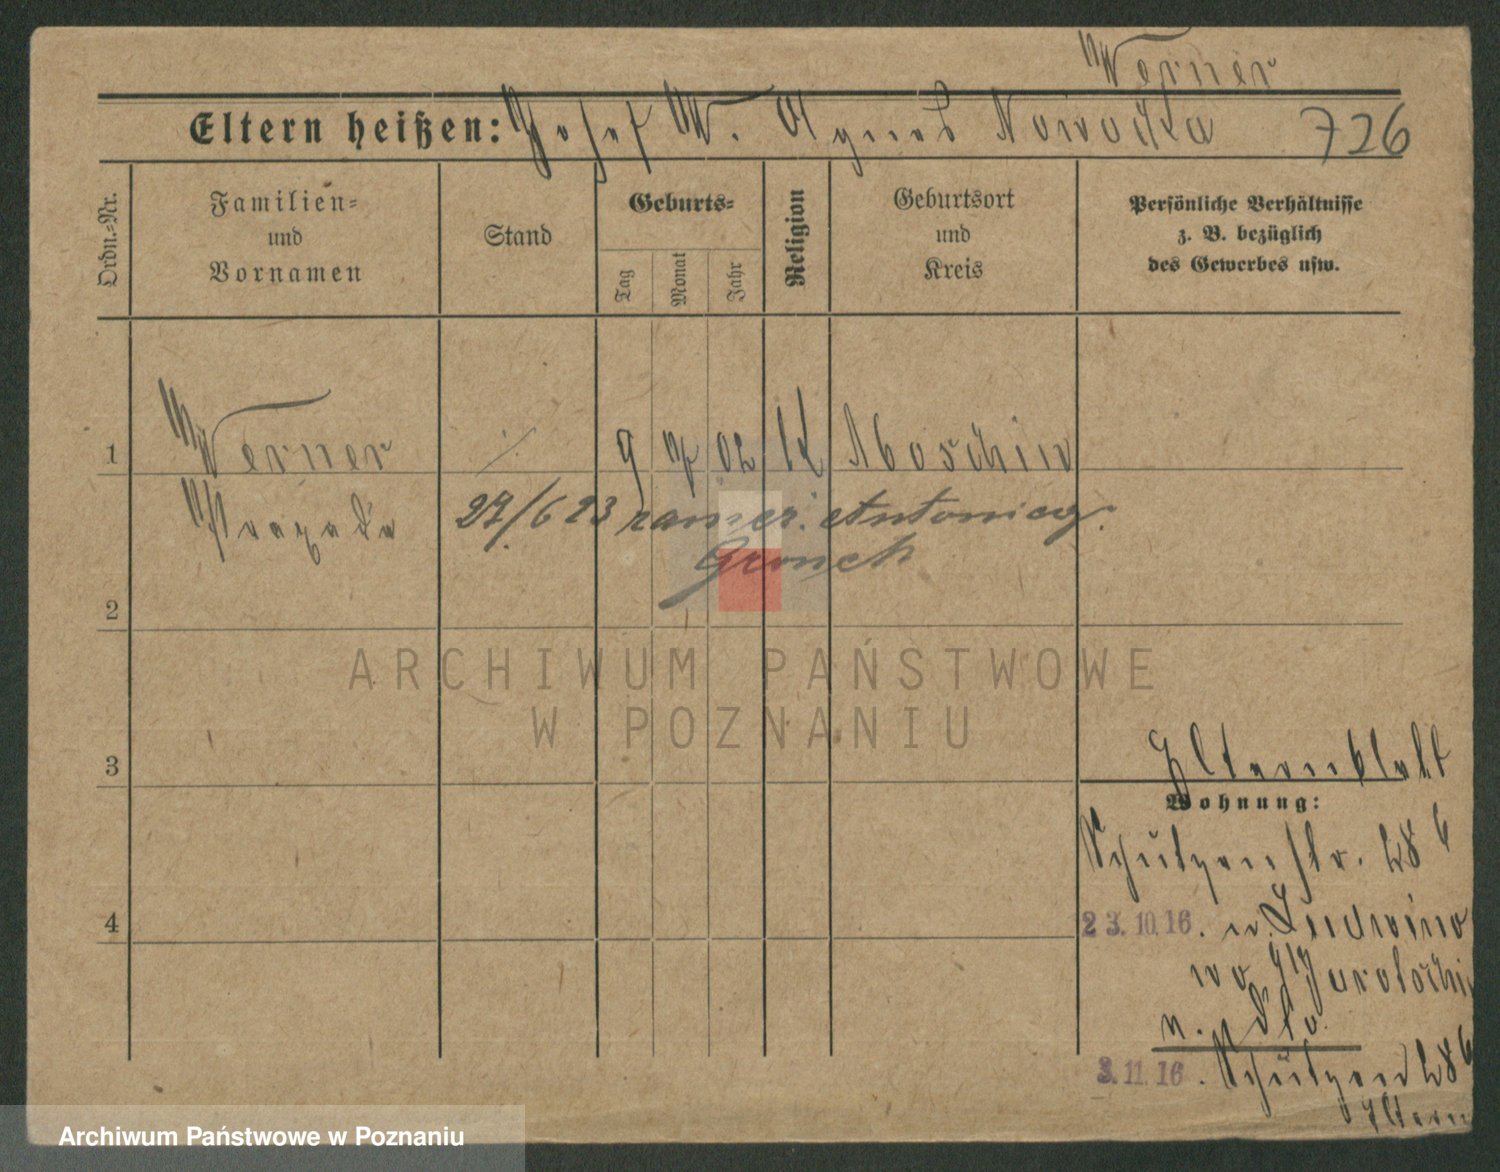 Werner
Eltern heißen: Josef W. Agnes Nowicka 726
Ordn.-Nr.
Familien-
und
Vornamen
Stand
Geburts-
Tag
Monat
Jahr
Religion
Geburtsort
und
Kreis
Persönliche Verhältnisse
z. B. bezüglich
des Gewerbes usw.
1 Werner ⁒ 9 02 K Moschin
27/6 23 zamęż. Antoni
2
ARCHIWUM PAŃSTWOWE
W POZNANIU
3
Elternblatt
Wohnung:
Schützenstr. 28 b
4
23.10.16. n.
n.
3.11.16. Schützen 28 b
Eltern
Archiwum Państwowe w Poznaniu